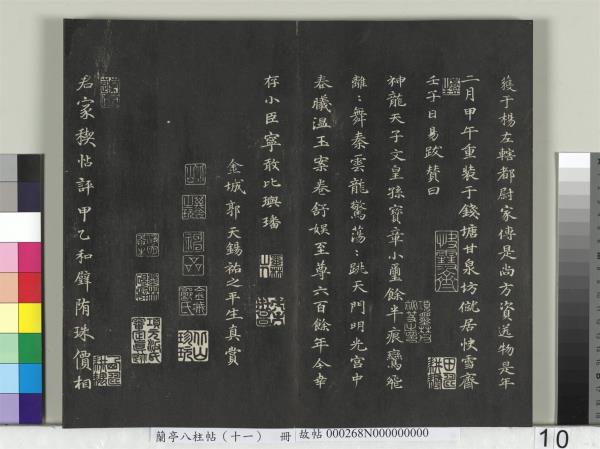 獲于楊左轄都尉家傳是尚方資送物是年
二月甲午重裝于錢塘甘泉坊僦居快雪齋
壬子日易跋贊曰
神龍天子文皇孫寶章小璽餘半痕鸞飛
離〻舞秦雲龍驚蕩〻跳天門明光宮中
春曦溫玉案卷舒娛至尊六百餘年今幸
存小臣寧敢比璵璠
金城郭天錫祐之平生真賞
君家稧帖評甲乙和璧隋珠價相
蘭亭八柱帖(十一) 冊
故帖 000268N000000000
10